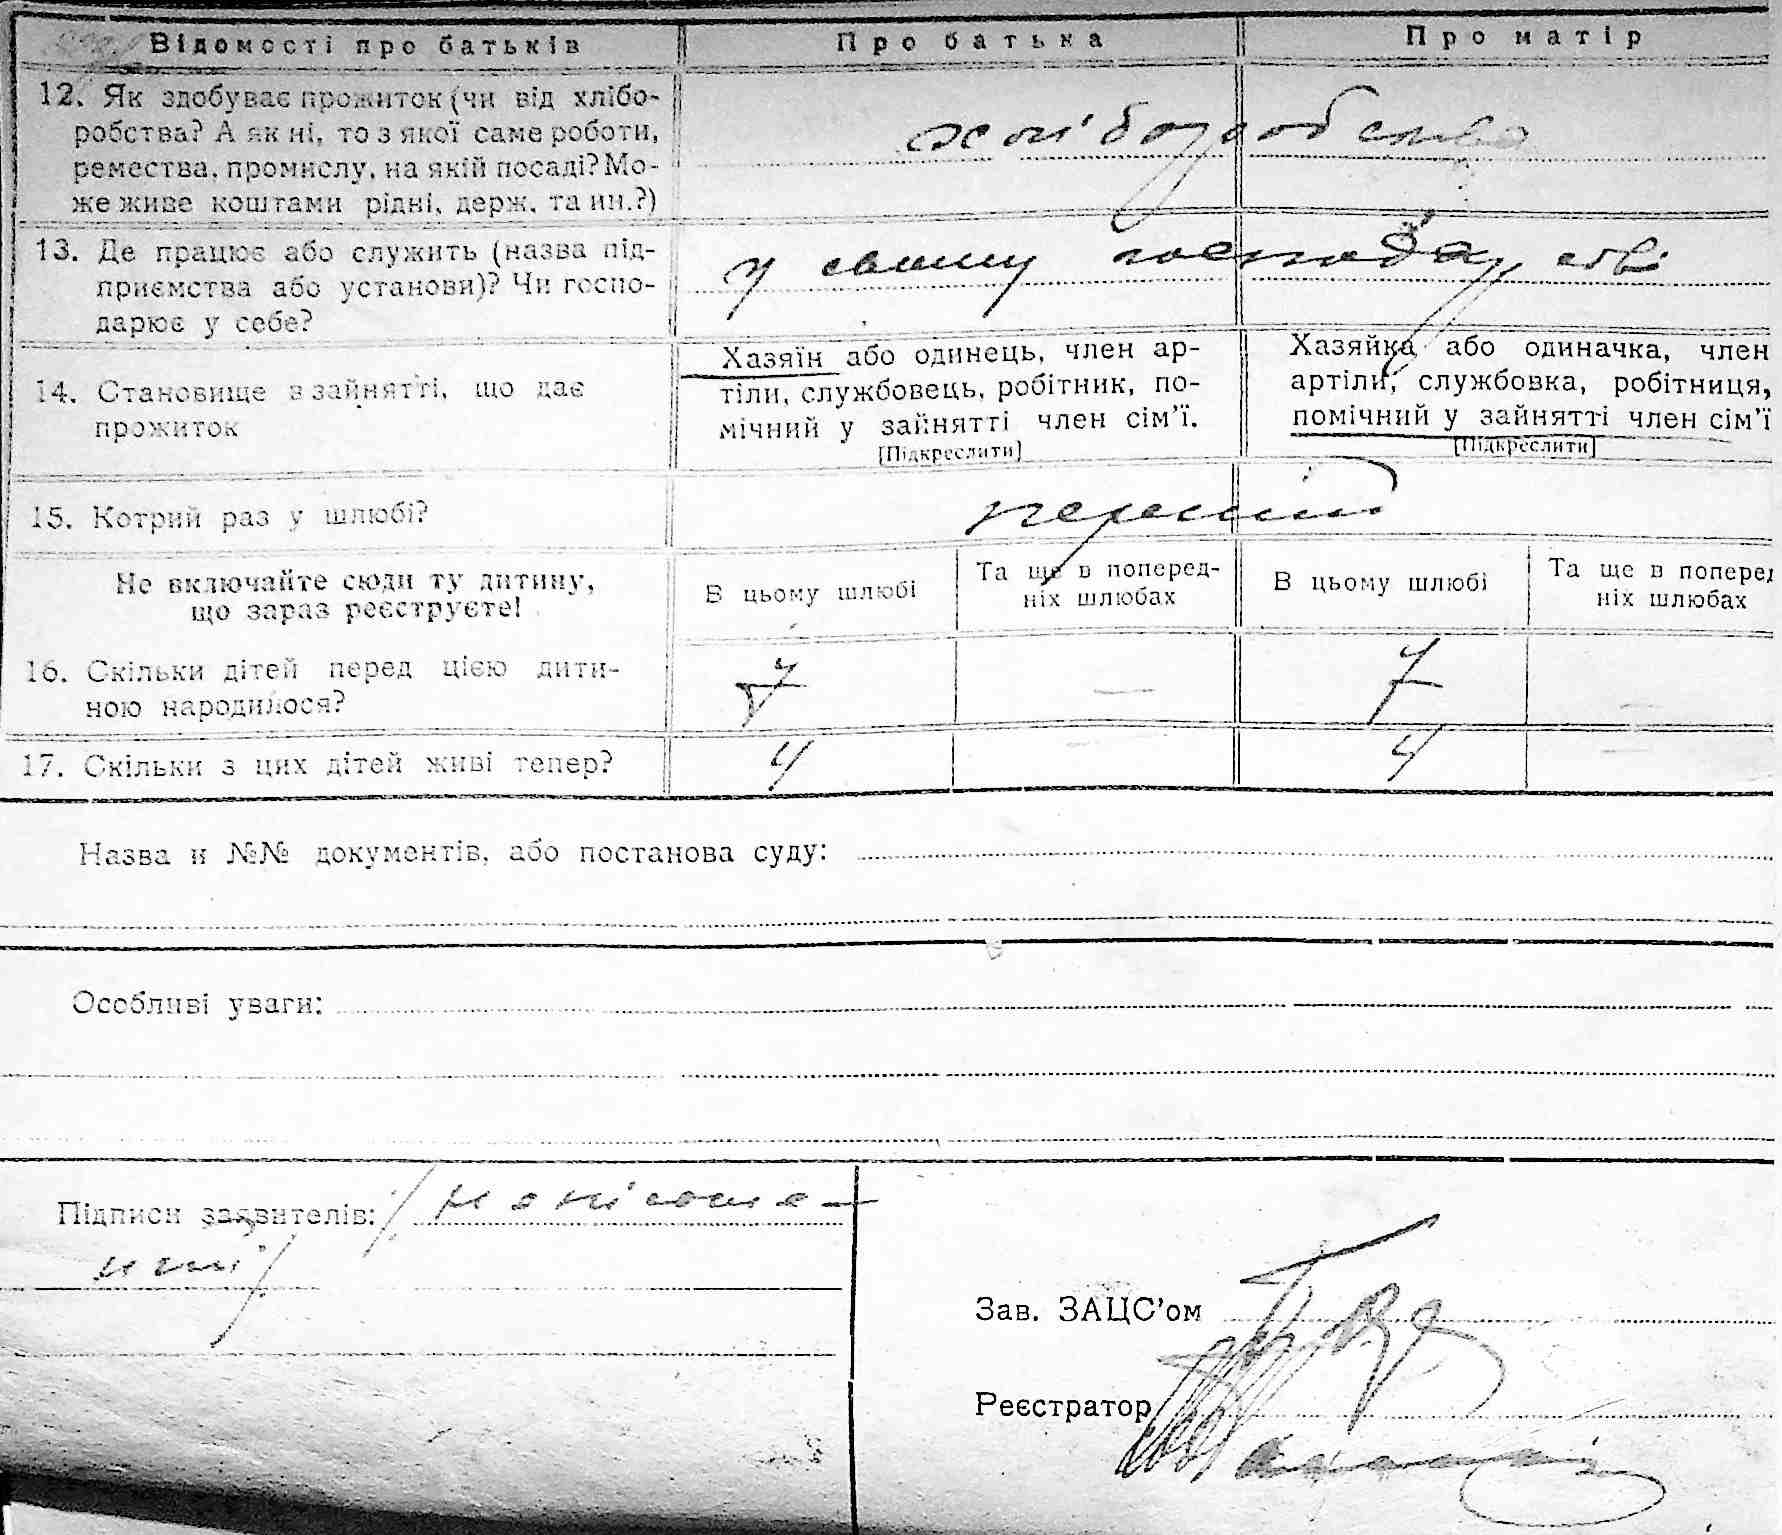 Відомості про батьків
Про батька
Про матір
12. Як здобуває прожиток (чи від хлібо-
робства? А як ні, то з якої саме роботи,
ремества, промислу, на якій посаді? Мо-
же живе коштами рідні, держ. та ин.?)
хліборобство
13. Де працює або служить (назва під-
приємства або установи)? Чи госпо-
дарює у себе?
у своєму господарстві
14. Становище в зайнятті, що дає
прожиток
Хазяїн або одинець, член ар-
тіли, службовець, робітник, по-
мічний у зайнятті член сім'ї.
[Підкреслити]
Хазяйка або одиначка, член
артіли, службовка, робітниця,
помічний у зайнятті член сім'ї
[Підкреслити]
15. Котрий раз у шлюбі?
перший
Не включайте сюди ту дитину,
що зараз реєструєте!
В цьому шлюбі
Та ще в поперед-
ніх шлюбах
В цьому шлюбі
Та ще в поперед
ніх шлюбах
16. Скільки дітей перед цією дити-
ною народилося?
7 — 7 —
17. Скільки з цих дітей живі тепер?
4 — 4 —
Назва и №№ документів, або постанова суду:
Особливі уваги:
Підписи заявителів: /
Зав. ЗАЦС'ом
Реєстратор